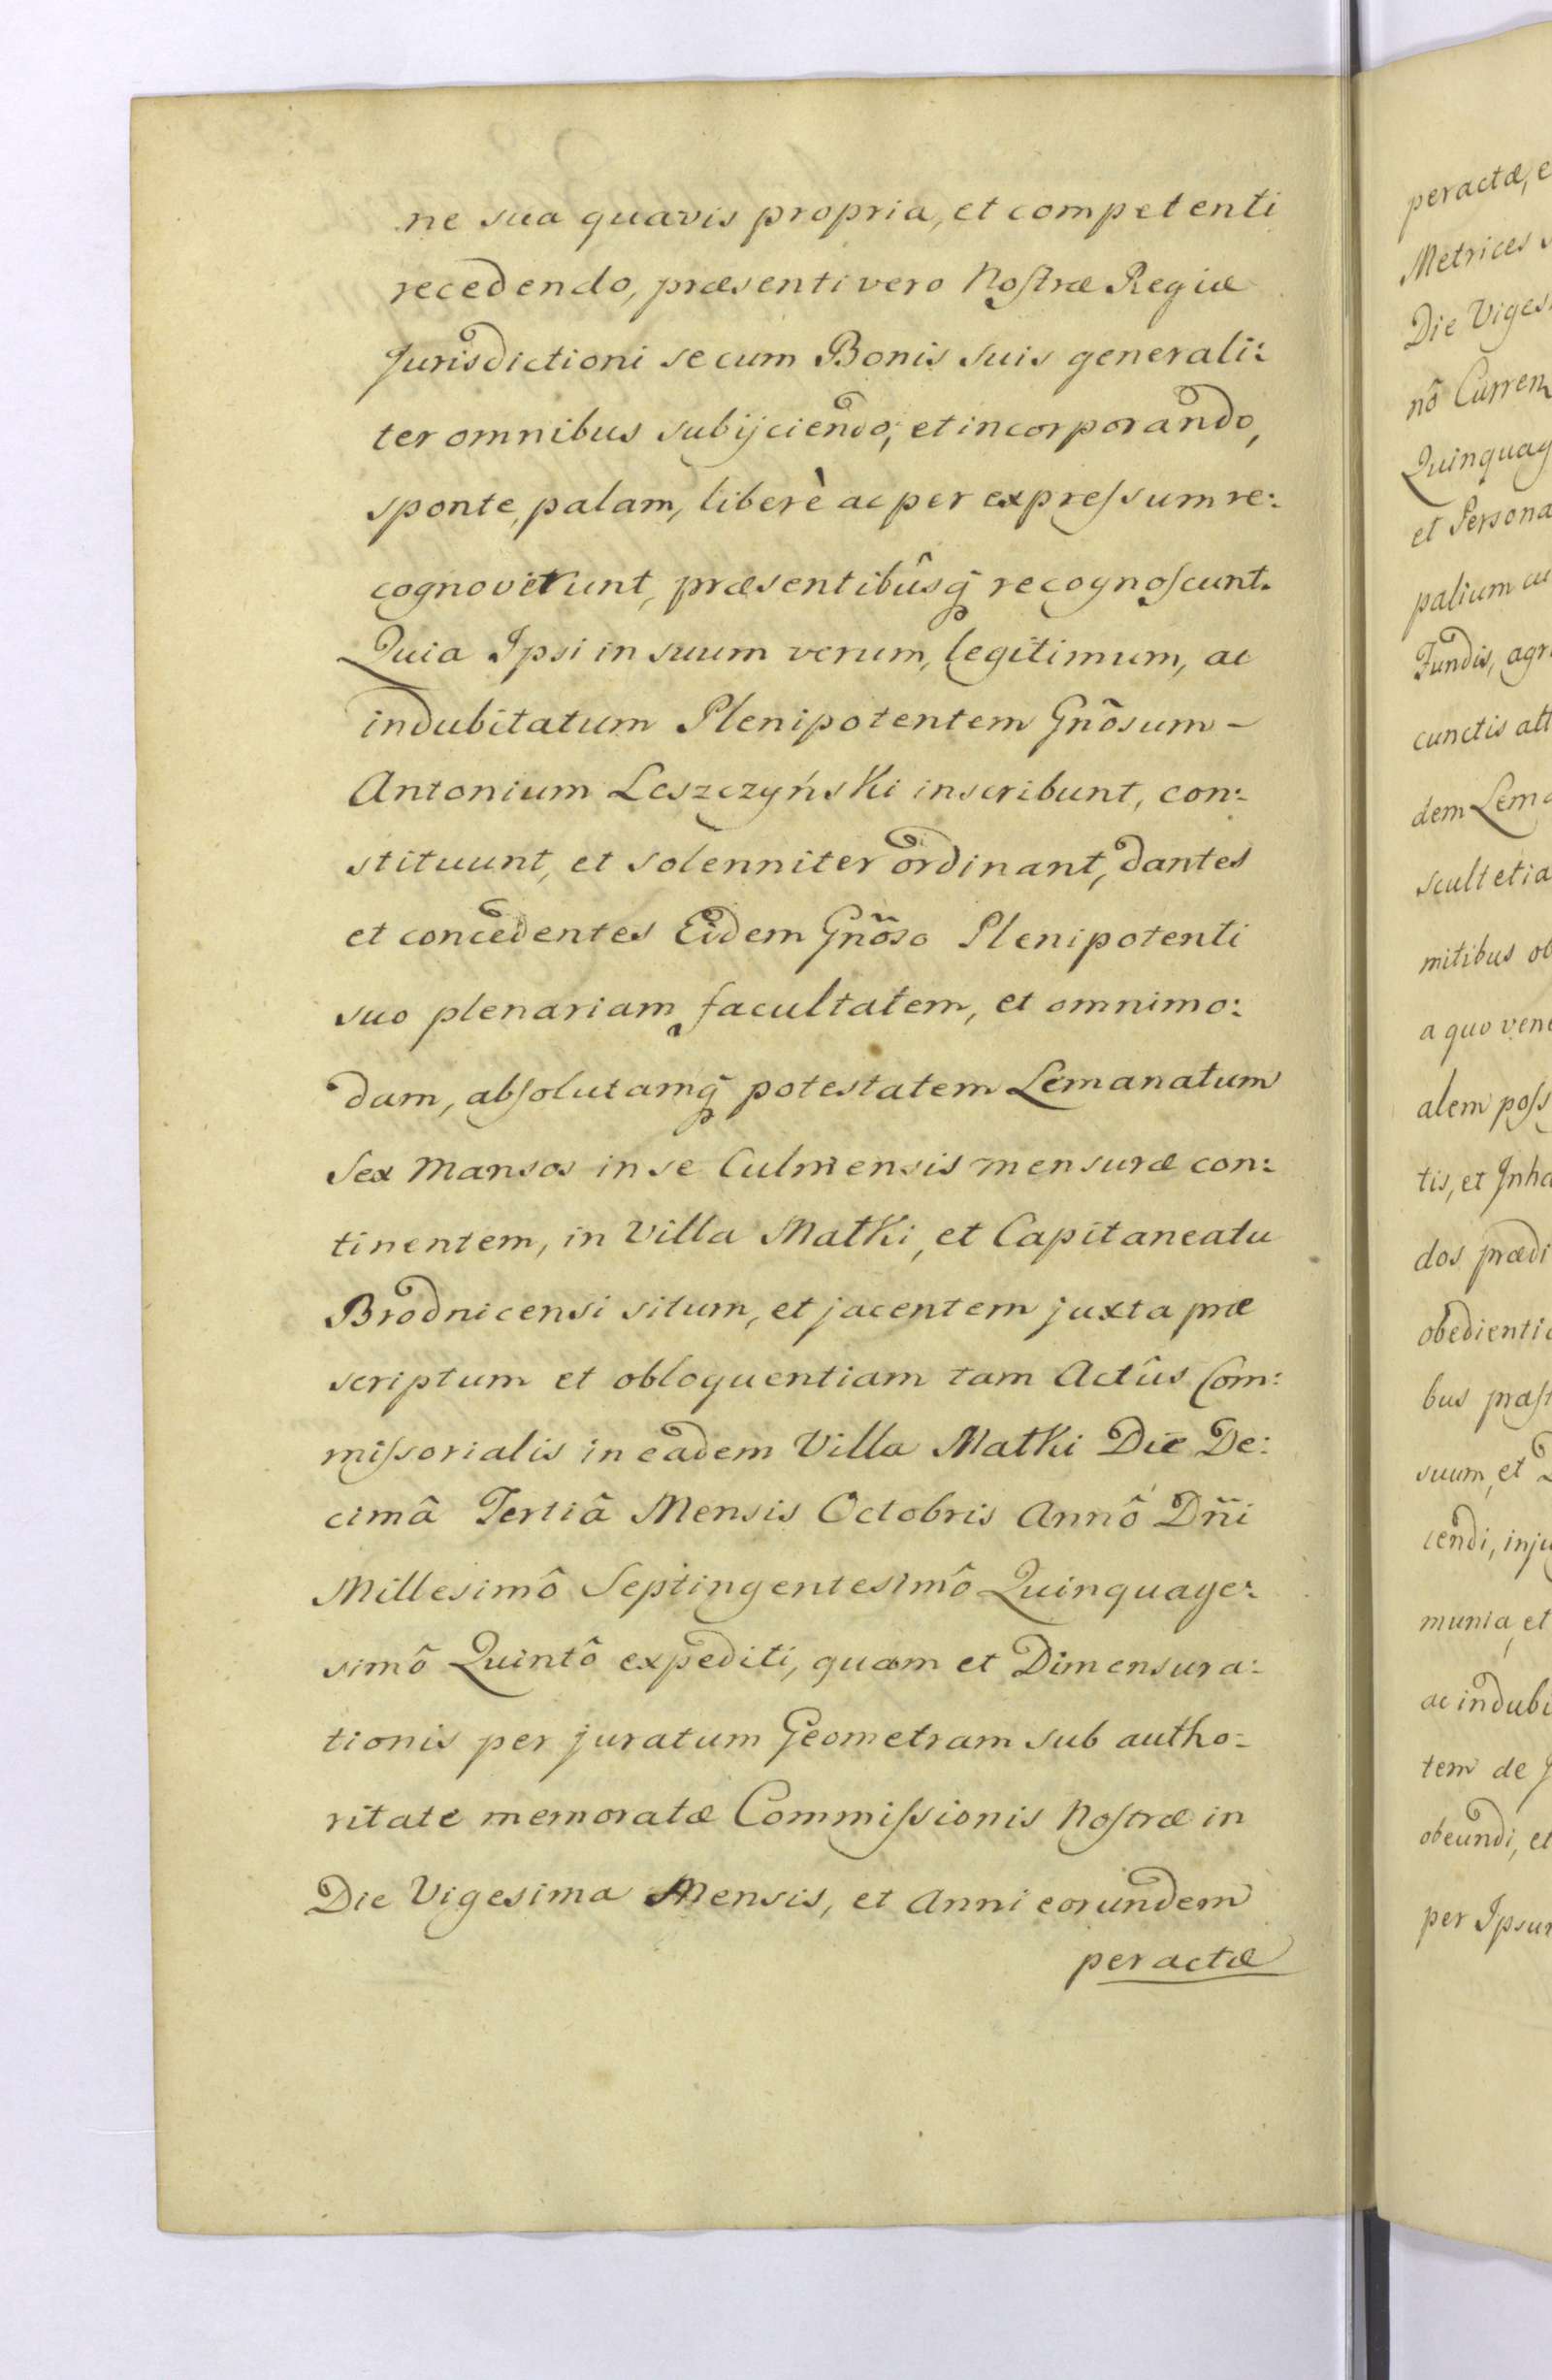 ne sua quavis propria, et competenti
recedendo, præsenti vero Nostræ Regiæ
Jurisdictioni se cum Bonis suis generali:
ter omnibus subijciendo, et incorporando,
sponte, palam, liberè ac per expressum re:
cognoverunt, præsentibûsq̃ recognoscunt.
Quia Ipsi in suum verum, legitimum, ac
indubitatum Plenipotentem Gnõsum -
Antonium Leszczyński inscribunt, con:
stituunt, et solenniter ordinant, dantes
et concedentes Eidem Gnõso Plenipotenti
suo plenariam facultatem, et omnimo:
dam, absolutamq̃ potestatem Lemanatum
Sex Mansos in se Culmensis mensuræ con:
tinentem, in Villa Matki, et Capitaneatu
Brodnicensi situm, et jacentem juxta præ
scriptum et obloquentiam tam Actûs Com:
missorialis in eadem Villa Matki Die De:
cimâ Tertiâ Mensis Octobris Annô Dñi
Millesimô Septingentesimô Quinquage:
simô Quintô expediti, quam et Dimensura:
tionis per juratum Geometram sub autho:
ritate memoratæ Commissionis Nostræ in
Die Vigesima Mensis, et Anni eorundem
peractæ
peractæ, e
Metrices
Die Viges
nô Curren
Quinquag
et Persona
palium cu
Fundis, agr
cunctis att
dem Lema
scultetia
mitibus ob
a quo vene
alem poss
tis, et Inha
dos prædi
obedientia
bus præst
suum, et
cendi, inju
munia, et
ac indubi
tem de J
obeundi, et
per Ipsum